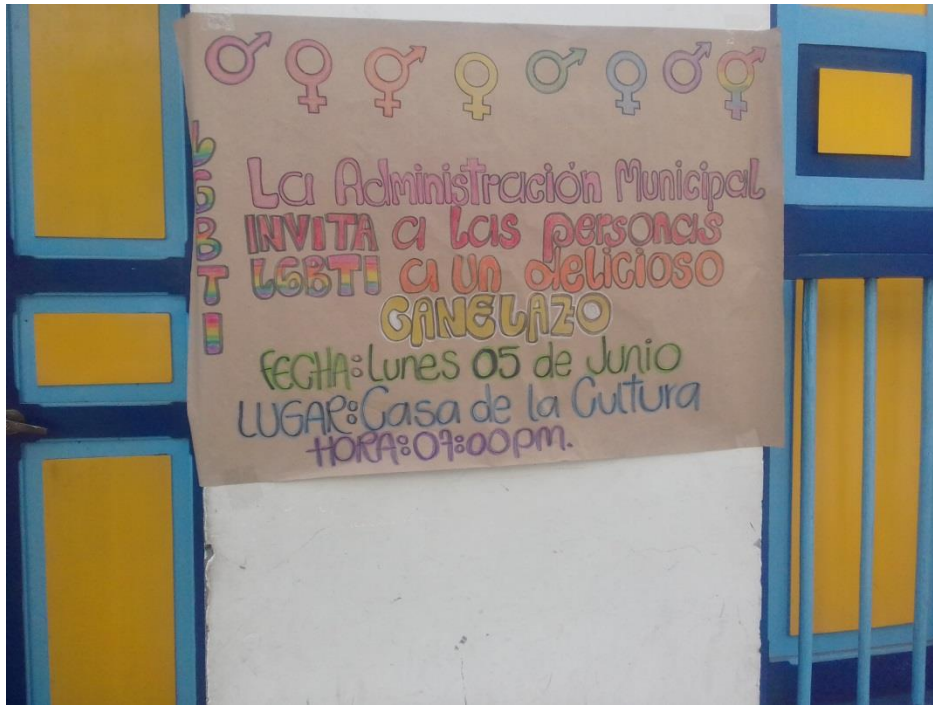 LGBTI
La Administración Municipal
INVITA a las personas
LGBTI a un delicioso
CANELAZO
FECHA: Lunes 05 de Junio
LUGAR: Casa de la Cultura
HORA: 07:00pm.